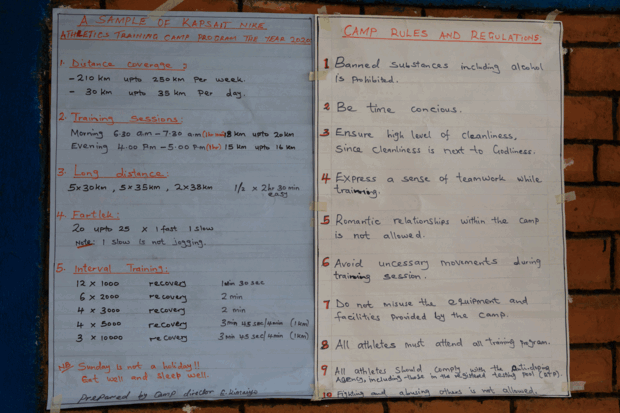 A SAMPLE OF KAPSAIT NIKE
ATHLETICS TRAINING CAMP PROGRAM THE YEAR 2020
1. Distance coverage:
- 210 km upto 250 km Per week.
- 30 km upto 35 km Per day.
2. Training sessions:
Morning 6:30 a.m - 7:30 a.m (1hr) 18 km upto 20km
Evening 4:00 Pm - 5:00 Pm (1hr) 15 km upto 16 km
3. Long distance:
5x30km, 5x35km, 2x38km 1/2 x 2hr 30 min
easy
4. Fartlek:
20 upto 25 x 1 fast 1 slow
Note: 1 slow is not jogging.
5. Interval Training:
12 x 1000 recovery 1min 30 sec
6 x 2000 recovery 2 min
4 x 3000 recovery 2 min
4 x 5000 recovery 3min 45 sec/4min (1km)
3 x 10000 recovery 3min 45 sec/4min (1km)
NB Sunday is not a holiday!!
Eat well and sleep well.
Prepared by camp director
CAMP RULES AND REGULATIONS
1 Banned substances including alcohol
is Prohibited.
2 Be time concious.
3 Ensure high level of cleanliness,
since cleanliness is next to Godliness.
4 Express a sense of teamwork while
training.
5 Romantic relationships within the camp
is not allowed.
6 Avoid uncessary movements during
training session.
7 Do not misuse the equipment and
facilities provided by the camp.
8 All athletes must attend all training program.
9 All athletes should comply with the Anti-doping
Agency, including those in the registered testing pool (RTP).
10 Fighting and abusing others is not allowed.